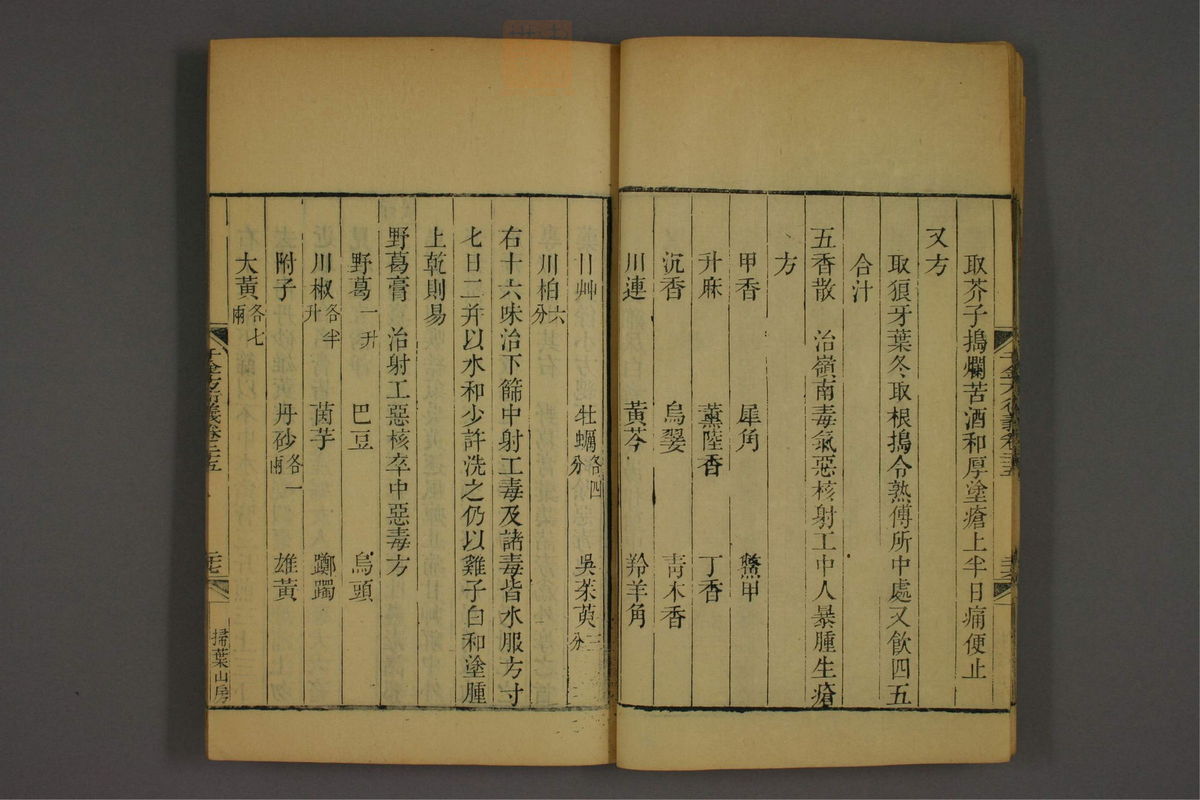 取芥子搗爛苦酒和厚塗瘡上半日痛便止
又方
取狼牙葉冬取根搗令熟傅所中處又飲四五
合汁
五香散 治嶺南毒氣惡核射工中人暴腫生瘡
方
甲香 犀角 鱉甲
升麻 薰陸香 丁香
沉香 烏翣 青木香
川連 黃芩 羚羊角
甘艸 牡蠣各四分 吳茱萸三分
川柏六分
右十六味治下篩中射工毒及諸毒皆水服方寸
七日二并以水和少許洗之仍以雞子白和塗腫
上乾則易
野葛膏 治射工惡核卒中惡毒方
野葛一升 巴豆 烏頭
川椒各半升 茵芋 躑躅
附子 丹砂各一兩 雄黃
大黃各七兩
掃葉山房